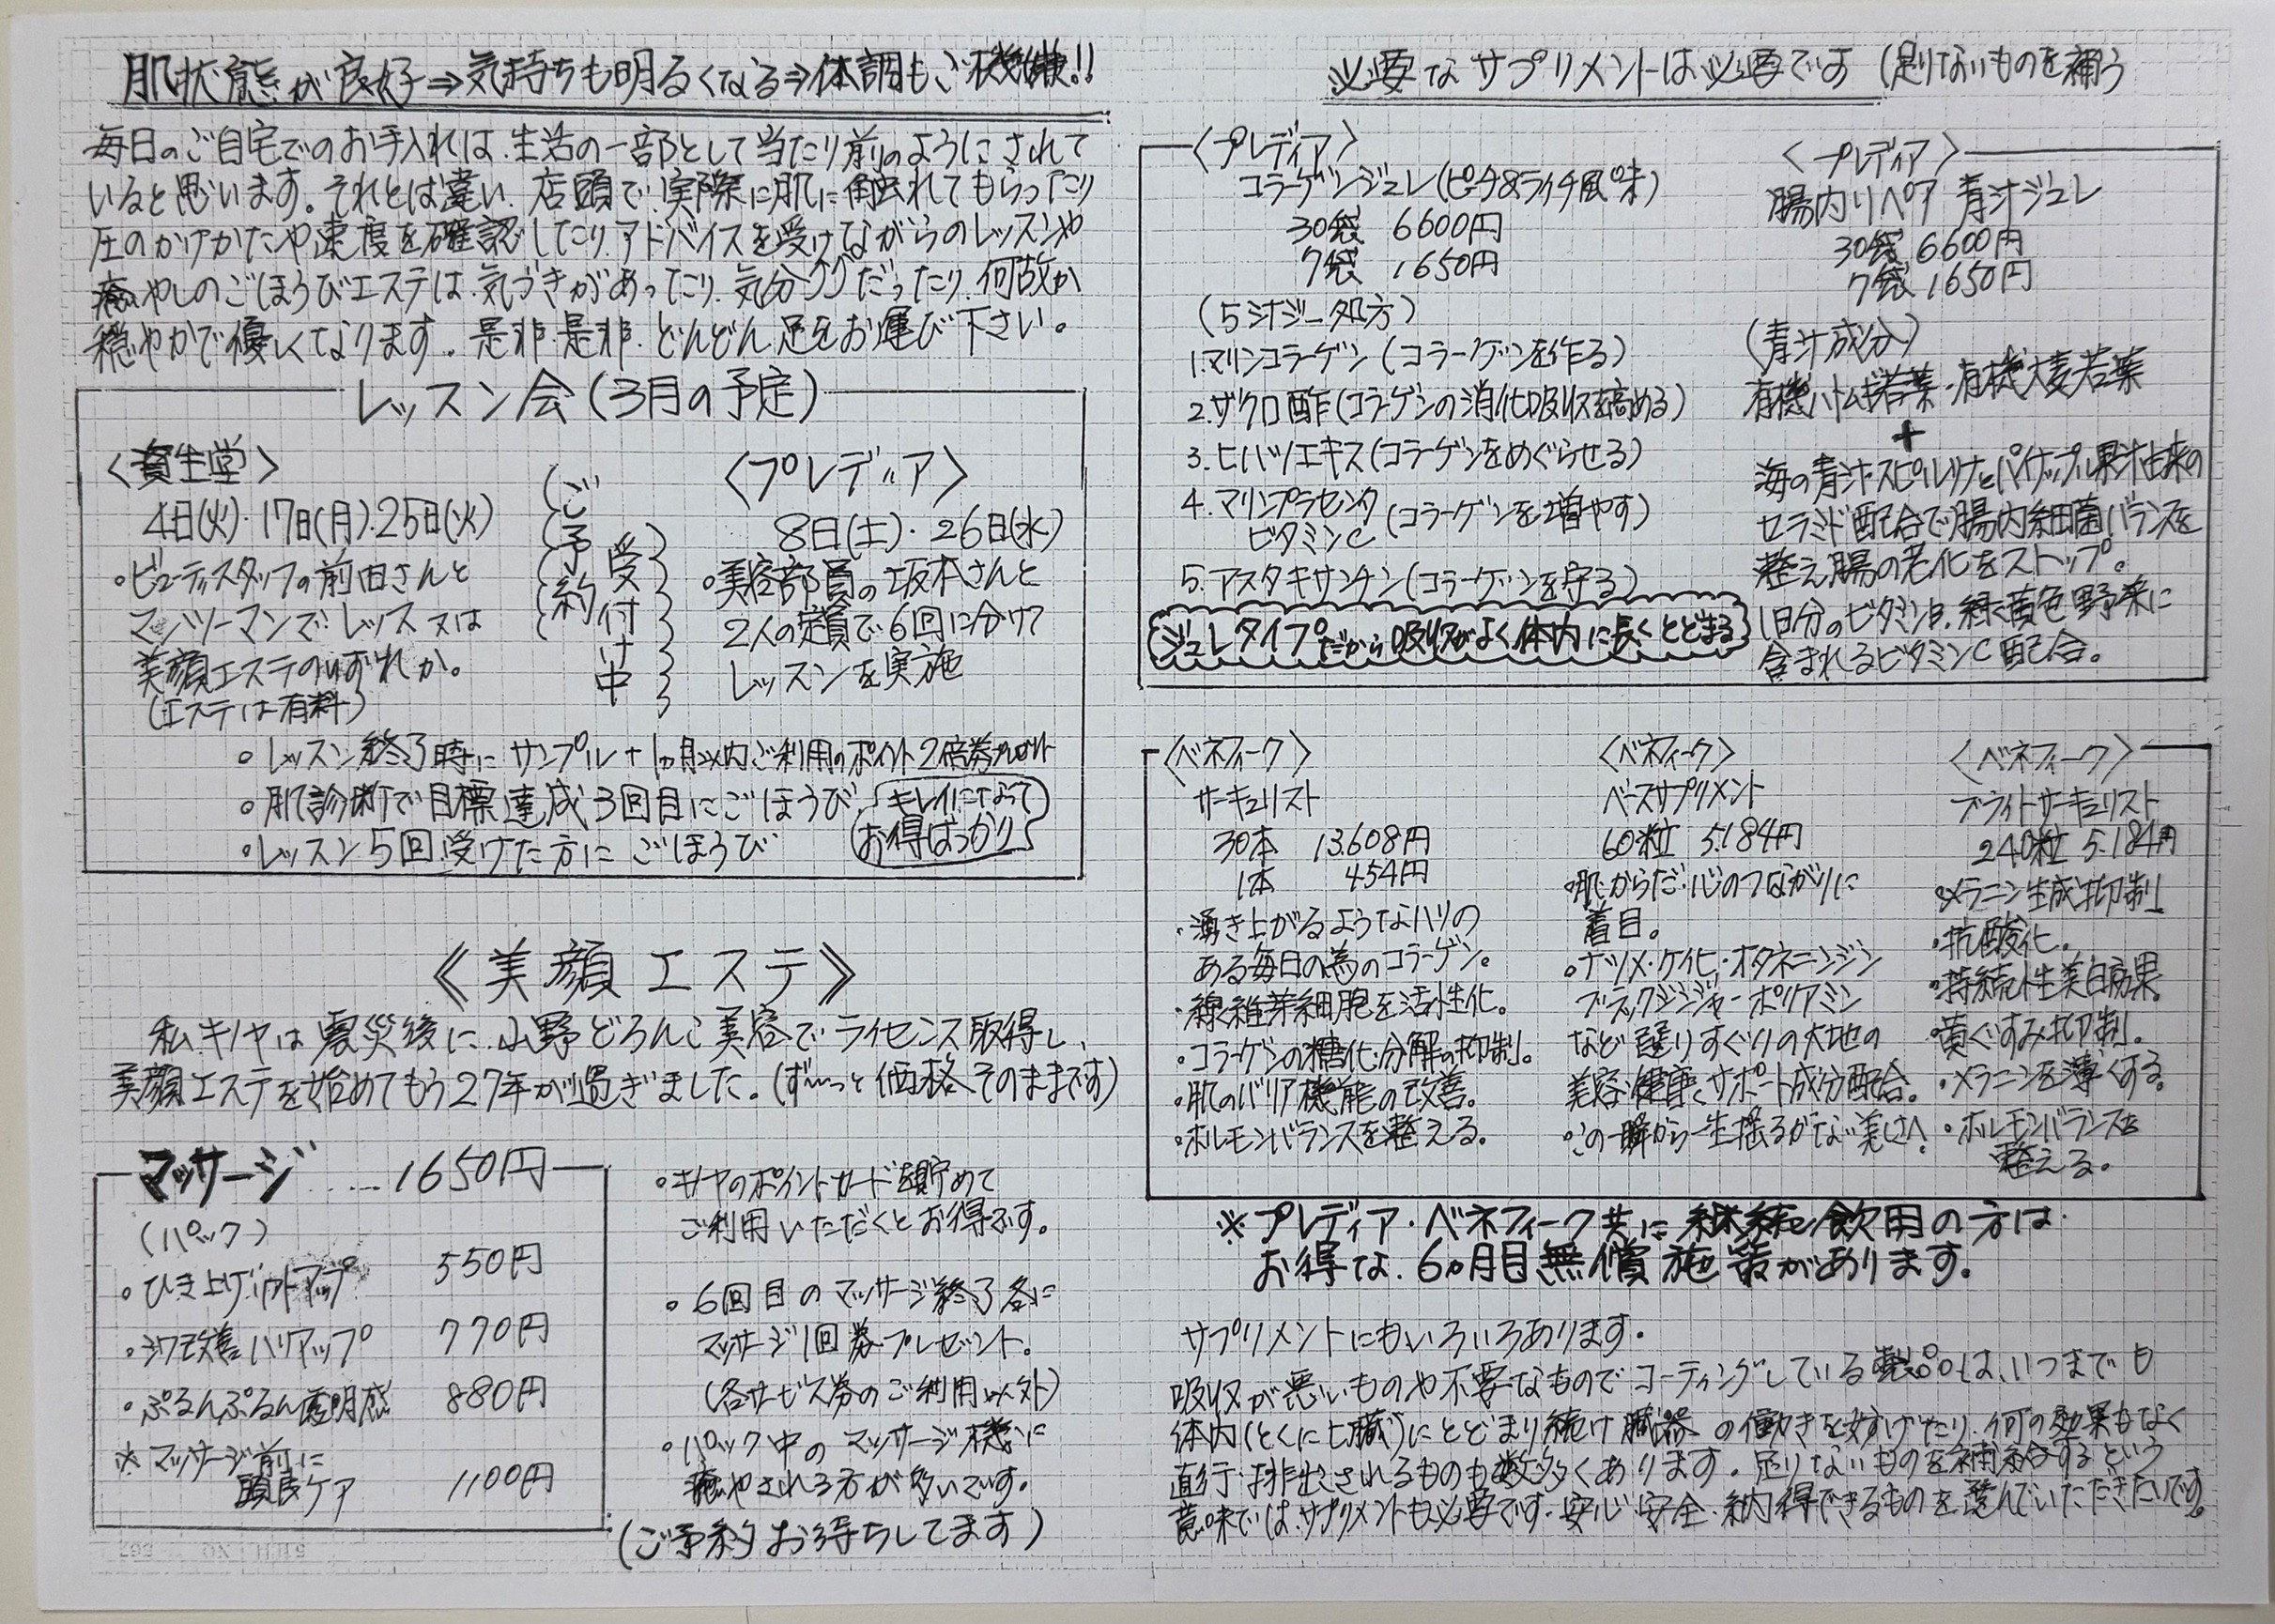 肌状態が良好⇒気持ちも明るくなる⇒体調もご機嫌!!
毎日のご自宅でのお手入れは、生活の一部として当たり前のようにされて
いると思います。それとは違い、店頭で、実際に肌に触れてもらったり
圧のかけかたや速度を確認したり、アドバイスを受けながらのレッスンや
癒やしのごほうびエステは、気づきがあったり、気分ググだったり、何故か
穏やかで優しくなります。是非、是非、どんどん足をお運び下さい。
レッスン会(3月の予定)
〈資生堂〉
4日(火)・17日(月)・25日(火)
・ビューティスタッフの前田さんと
マンツーマンで、レッスン又は
美顔エステのいずれか。
(エステは有料)
(ご予約受付け中)
〈プレディア〉
8日(土)・26日(水)
・美容部員の坂本さんと
2人の定員で、6回に分けて
レッスンを実施
・レッスン終了時に サンプル+1ヵ月以内ご利用のポイント2倍券プレゼント
・肌診断で目標達成3回目にごほうび
・レッスン5回受けた方に ごほうび
キレイになって
お得ばっかり
《美顔エステ》
私、キノヤは震災後に、小野どろんこ美容でライセンス取得し、
美顔エステを始めてもう27年が過ぎました。(ず〜っと価格そのままです)
マッサージ……1650円
(パック)
・ひき上げリフトアップ 550円
・シワ改善ハリアップ 770円
・ぷるんぷるん透明感 880円
※マッサージ前に
頭長ケア 1100円
・キノヤのポイントカードを貯めて
ご利用いただくとお得です。
・6回目のマッサージ終了各に
マッサージ1回券プレゼント。
(各サービス券のご利用以外)
・パック中のマッサージ機に
癒やされる方が多いです。
(ご予約お待ちしてます)
必要なサプリメントは必要です(足りないものを補う
〈プレディア〉
コラーゲンジュレ(ピーチ&ライチ風味)
30袋 6600円
7袋 1650円
(5シナジー処方)
1.マリンコラーゲン(コラーゲンを作る)
2.ザクロ酢(コラーゲンの消化吸収を高める)
3.ヒハツエキス(コラーゲンをめぐらせる)
4.マリンプラセンタ
ビタミンC(コラーゲンを増やす)
5.アスタキサンチン(コラーゲンを守る)
ジュレタイプだから吸収がよく体内に長くとどまる
〈プレディア〉
腸内リペア 青汁ジュレ
30袋 6600円
7袋 1650円
(青汁成分)
有機ハトムギ若葉・有機大麦若葉
+
海の青汁・スピルリナとパイナップル果汁由来の
セラミド配合で腸内細菌バランスを
整え、腸の老化をストップ。
1日分のビタミンB、緑黄色野菜に
含まれるビタミンC配合。
〈ベネフィーク〉
サーキュリスト
30本 13.608円
1本 454円
・湧き上がるようなハリの
ある毎日の為のコラーゲン。
・線維芽細胞を活性化。
・コラーゲンの糖化・分解の抑制。
・肌のバリア機能の改善。
・ホルモンバランスを整える。
〈ベネフィーク〉
ベースサプリメント
60粒 5.184円
・肌・からだ・心のつながりに
着目。
・ナツメ・ケイヒ・オタネニンジン
ブラックジンジャー・ポリアミン
など選りすぐりの大地の
美容・健康サポート成分配合。
・この瞬から一生揺るがない美しさへ!
〈ベネフィーク〉
ブライトサーキュリスト
240粒 5.184円
・メラニン生成抑制
・抗酸化。
・持続性美白効果。
・黄ぐすみ抑制。
・メラニンを薄くする。
・ホルモンバランスを
整える。
※プレディア・ベネフィーク共に継続飲用の方は
お得な、6ヵ月目無償施策があります。
サプリメントにもいろいろあります。
吸収が悪いものや不要なものでコーティングしている製品は、いつまでも
体内(とくに心臓)にとどまり続け臓器の働きを妨げたり、何の効果もなく
直行・排出されるものも数多くあります。足りないものを補給するという
意味では、サプリメントも必要です。安心・安全・納得できるものを選んでいただきたいです。